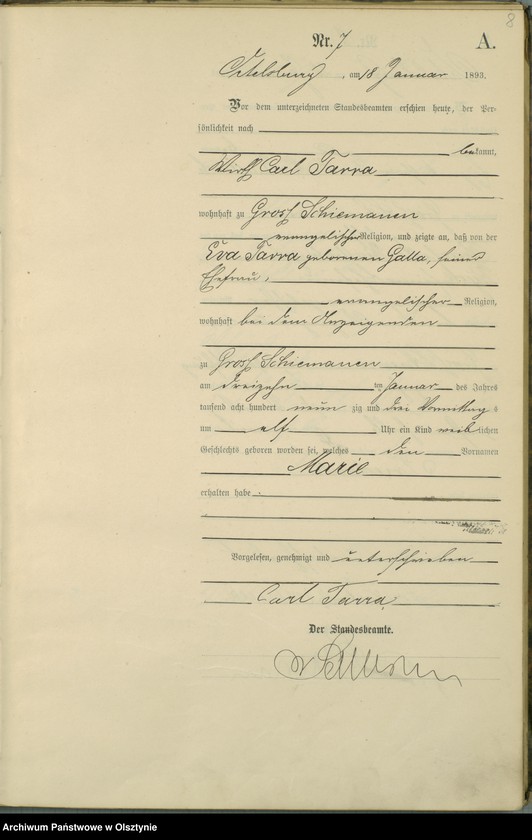 8
Nr. 7 A.
Ortelsburg, am 18 Januar 1893.
Vor dem unterzeichneten Standesbeamten erschien heute, der Per-
sönlichkeit nach
bekannt,
Wirth Carl Tarra
wohnhaft zu Gross Schiemanen
evangelischer Religion, und zeigte an, daß von der
Eva Tarra geborenen Galla, seiner
Ehefrau,
evangelischer Religion,
wohnhaft bei dem Anzeigenden
zu Gross Schiemanen
am dreizehn ten Januar des Jahres
tausend acht hundert neun zig und drei Vormittag s
um elf Uhr ein Kind weiblichen
Geschlechts geboren worden sei, welches den Vornamen
Marie
erhalten habe.
Vorgelesen, genehmigt und unterschrieben
Carl Tarra
Der Standesbeamte.
Archiwum Państwowe w Olsztynie